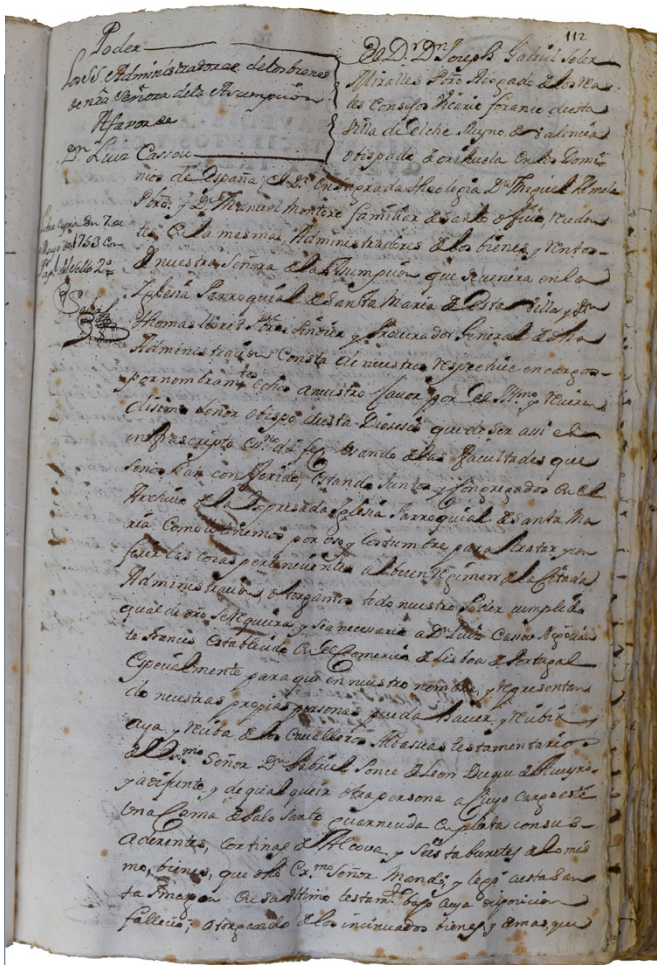 112
Poder
Los SS. Administradores de los bienes
de nra Señora de la Assumpcion
A favor de
Dn. Luis Cassou
El Dr. Dn. Joseph Gabriel Soler
Miralles Pbro Abogado de los Rea-
les Consejos Vicario foraneo de esta
Villa de Elche Reyno de Valencia
obispado de orihuela en los Domi-
nios de España, El Dr. en sagrada Theologia Dn.
Pbro, y Dn. Manuel Montoro familiar de santo oficio, Residen-
tes en la mesma, Administradores de los bienes, y rentas
de nuestra Señora de la Assumpcion que se venera en la
Iglesia Parroquial de Santa Maria de esta Villa y Dn.
Thomas Pbro Sindico y Procurador General de dha
Administracion Consta de nuestros respective encargos
por nombramtos. echos a nuestro favor por el Illmo. y Revere
disimo Señor obispo de esta Diosesis que de ser assi el
infrascripto Essno. da fee, Usando de las facultades que
se nos han conferido, Estando Juntos y Congregados en el
Archivo de la Expresada Iglesia Parroquial de Santa Ma
ria Como lo tenemos por uso, y Costumbre para tratar y con
ferir las cosas pertenecientes al buen regimen de la Citada
Administracion otorgamos todo nuestro Poder cumplido
qual de dro. se requiera, y sea necessario a Dn. Luis Cassou Negocian
te Frances Establecido en el Comercio de Lisboa de Portugal
Especialmente para que en nuestro nombre, y representan
do nuestras propias personas pueda haver, y recibir
aya, y reciba de los Cavalleros Albaseas testamentarios
del Exmo. Señor Dn. Gabriel Ponce de Leon Duque de Aveyro
ya difunto, y de qualquier otra persona a cuyo cargo esté
Una Cama de Palo Santo guarnecida en plata con sus
Aderentes, Cortinas de Alcova, y Seis taburetes de lo mis
mo, bienes, que dho Exmo. Señor Mandó, y legó a esta San
ta Imagen en su Ultimo testamto. bajo cuya disposicion
fallecio; otorgando de los insinuados bienes, y demas, que
Libre Copia en 7. de
Mayo de 1753 en
papl. del sello 2º.